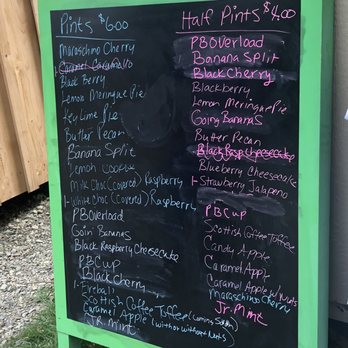 Pints $6.00
Maraschino Cherry
Caramel
Black Berry
Lemon Meringue Pie
Key Lime Pie
Butter Pecan
Banana Split
Lemon Cookie
Milk Choc (Covered) Raspberry
1- White Choc (Covered) Raspberry
PB Overload
Goin' Bananas
Black Raspberry Cheesecake
PB Cup
Black Cherry
1- Fireball
Scottish Coffee Toffee (coming Soon)
Caramel Apple (with or without Nuts)
Jr. Mint
Half Pints $4.00
PB Overload
Banana Split
Black Cherry
Blackberry
Lemon Meringue Pie
Going Bananas
Butter Pecan
Black Rasp Cheesecake
Blueberry Cheesecake
1- Strawberry Jalapeno
PB Cup
Scottish Coffee Toffee
Candy Apple
Caramel Apple
Caramel Apple w/ Nuts
Maraschino Cherry
Jr. Mint